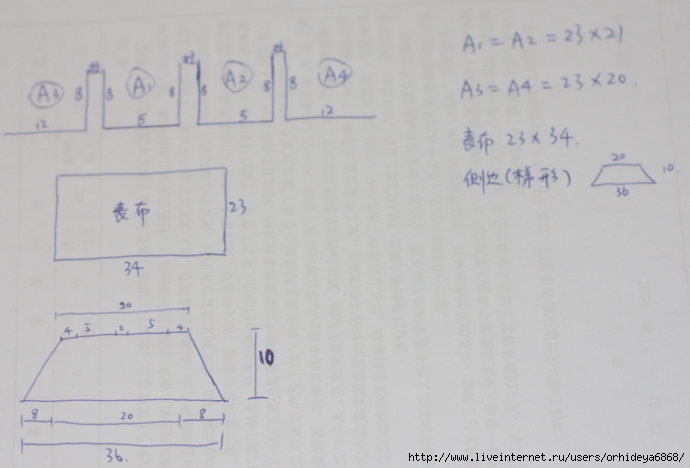 A3 A1 A2 A4
8 8 8 8 8 8
12 5 5 12
A1 = A2 = 23×21
A3 = A4 = 23×20.
表布 23×34.
侧边(梯形)
20
10.
36
表布
23
34
20
4 5 2 5 4
10
8 20 8
36.
http://www.liveinternet.ru/users/orhideya6868/